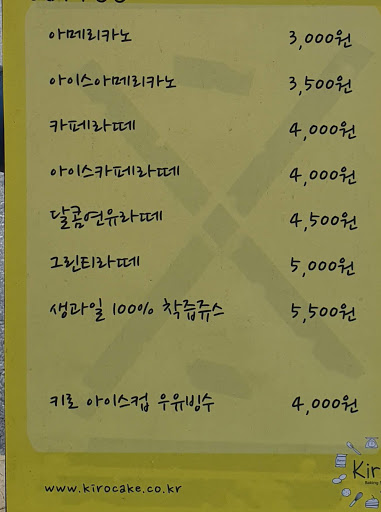 아메리카노 3,000원
아이스아메리카노 3,500원
카페라떼 4,000원
아이스카페라떼 4,000원
달콤연유라떼 4,500원
그린티라떼 5,000원
생과일 100% 착즙쥬스 5,500원
키로 아이스컵 우유빙수 4,000원
Kir
Baking
www.kirocake.co.kr